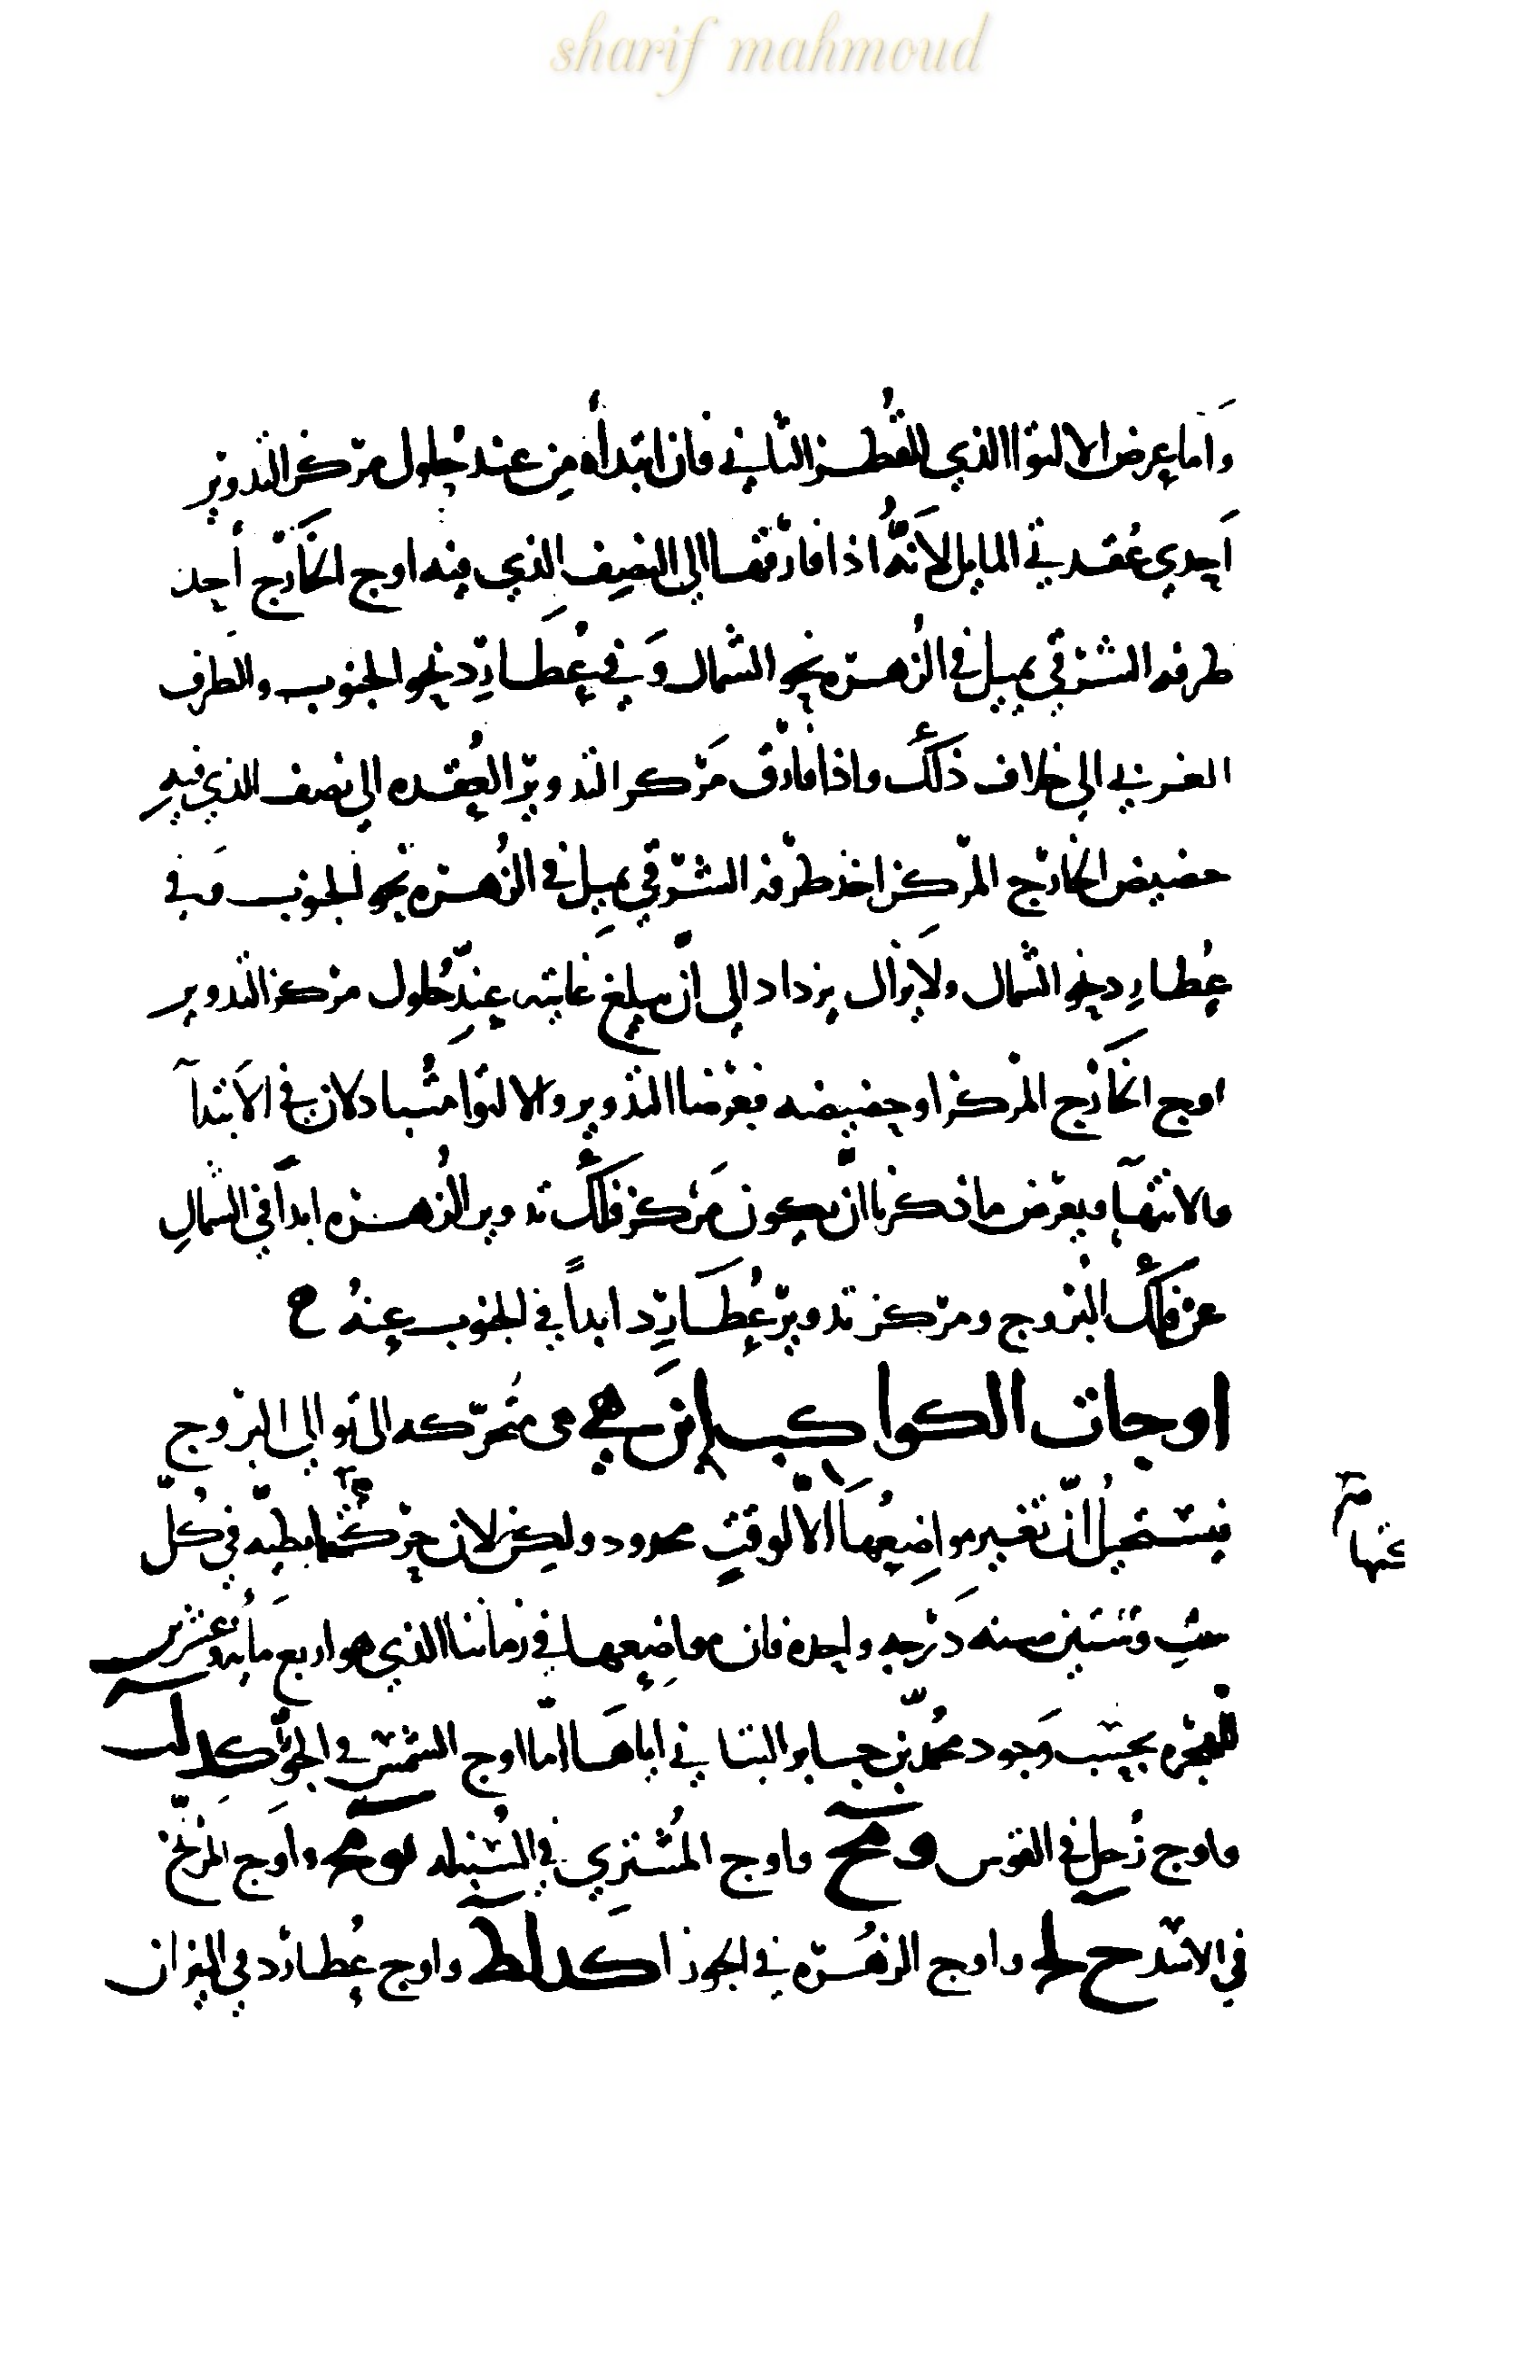 sharif mahmoud
واما عرض الالتوا الذي للقطر الثاني فان ابتدأه من عند حلول مركز التدوير
احدي عقدتي المايل لانه اذا فارقها الى النصف الذي فيه اوج الخارج أخذ
طرفه الشرقي يميل في الزهره نحو الشمال وفي عطارد نحو الجنوب والطرف
الغربي الى خلاف ذلك واذا فارق مركز التدوير العقده الى نصف الذي فيه
حضيض الخارج المركز اخذ طرفه الشرقي يميل في الزهره نحو الجنوب وفي
عطارد نحو الشمال ولا يزال يزداد الى ان يبلغ غايته عند حلول مركز التدوير
اوج الخارج المركز او حضيضه فعرضا التدوير والالتوا متبادلان في الابتدآ
والانتهآ ويعرض ما ذكرنا ان يكون مركز فلك تدوير الزهره ابدا في الشمال
عن فلك البروج ومركز تدوير عطارد ابداً في الجنوب عنه ح
اوجات الكواكب اين هي هي متحركه الى توالي البروج
فيستحيل ان تغير مواضعها الا لوقت محدود ولكن لان حركتها بطيه في كل
ست وستين سنه درجه واحده فان مواضعها في زماننا الذي هو اربع مايه وعشرين
للهجره بحسب وجود محمد بن جابر البتاني اياها اما اوج الشمس في الجوزا كد لب
واوج زحل في القوس و مح واوج المشتري في السنبله يو مح واوج المريخ
في الاسد ح لح واوج الزهره في الجوزا كد لط واوج عطارد في الميزان
عنها